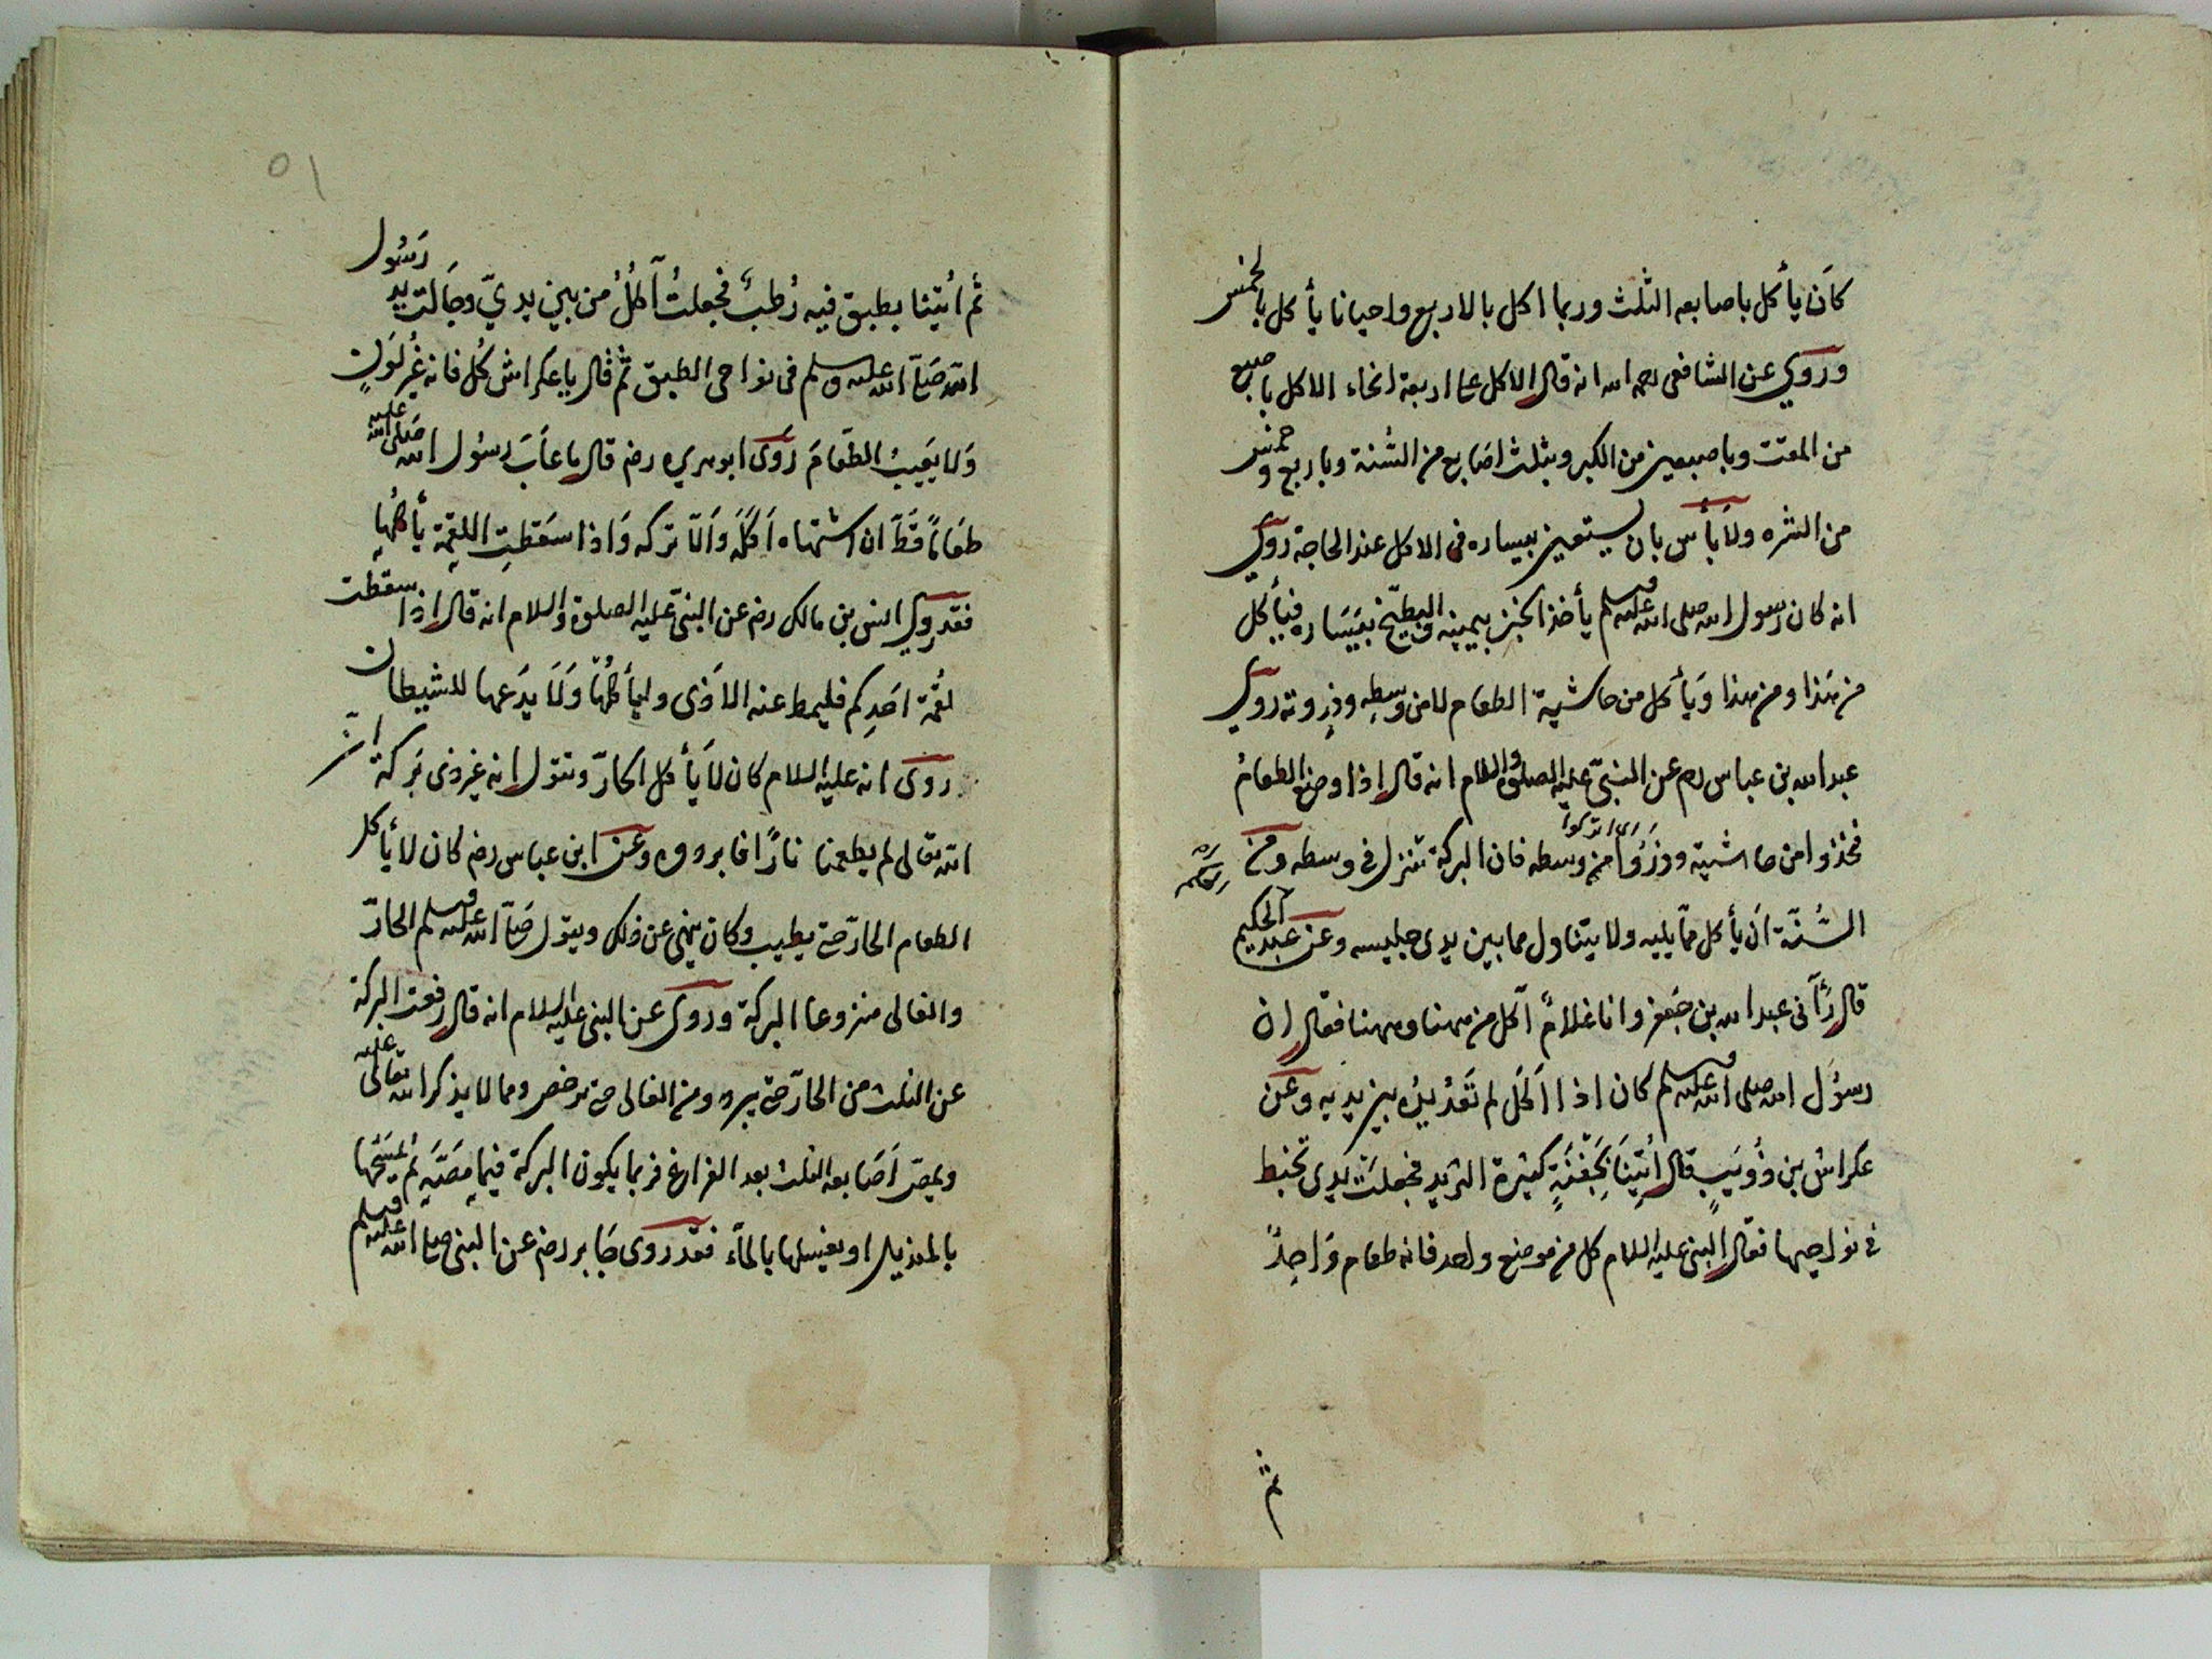 كَان يأكل باصابعه الثلث وربما اكل بالاربع واحيانا يأكل بالخمس
وروي عن الشافعى رحمه الله انه قال الاكل على اربعة انحاء الاكل باصبع
من المقت وباصبعين من الكبر وبثلث اصَابع من السُّنة وباربع وخمس
من الشره ولَابأس بان يستعين بيساره فى الاكل عند الحاجة روي
انه كان رسول الله صلى الله عليه وسلم يأخذ الخبز بيمينه والبطّيخ بيَسَاره فيأكل
من هَذا ومن هذا وَيأكل من حاشية الطعام لا من وسطِه وذِروته روي
عبد الله بن عباس رضم عن النبىّ عليه الصلوة والسلام انه قال اذا وضع الطعامُ
فخذوا من حاشيته وذرُوا من وسطه فان البركة تنزل فى وسطه ومن
اى اتركوا
السُّنّة اَن يأكل ممّا يليه ولا يتناول مما بين يدى جليسه وعن عبد الحكيم
قال رَأَنى عبد الله بن جَعفر وانا غلامٌ آكل من ههنا وههنا فقال ان
رسوُل الله صلى الله عليه وسلم كان اذا اَكَل لم تَعْدُ يدُه بين يديه وعَن
عكراش بن ذُوَيبٍ قال اُتِينَا بَجَفْنَةٍ كثيرة الثريد فجعلَت يَدِى تخبط
فى نواحيها فقال النبى عليه السلام كل من موضع واحد فانه طعام وَاحِدٌ
ثم
ثم اُتينا بطبق فيه رُطبٌ فجعلتُ آكلُ من بين يديّ وجَالت يد رَسُول
الله صَلَّى الله عليه وسلم فى نواحى الطبق ثمّ قال يا عكراش كُل فانه غيُر لَونٍ
وَلا يَعيبُ الطَعَامَ رَوَى ابو هريره رضم قال ما عَابَ رسُول الله صَلى الله عليه
طعَامًا قَطُّ ان اشتهاه اَكَلَه وَاَلّا تركه وَاذا سَقطتِ اللقمة يأكلُها
فقد روي انس بن مالك رضم عن النبىّ عليه الصلوة والسلام انه قال اذا سقطت
لقُمة احَدِكم فليمط عنه الاَذى وليأكلهَا وَلَا يدَعها للشيطان
روى انه عليه السلام كان لَا يأكل الحارّ وتقول انه غير ذى بَركة انّ
الله تعالى لم يطعمنا نارًا فابردوه وعَن ابن عباس رضم كان لا يأكل
الطعام الحارّ حتى يطيب وكان ينهى عن ذلك ويقول صَلّى الله عليه وسلم الحارّ
والغالى منزوعا البركة وروى عن النبى عليه السلام انه قال رفعت البركة
عن الثلث من الحارّ حتى يبرد ومن الغالى حتى يرخص ومما لا يذكر الله تعالى عليه
ويمصّ اَصَابعه الثلث بعد الفراغ فربما يكون البركة فيما مصّه ثم يمَسَحُها
بالمنديل او يغسلها بالماَء فقد روى جَابر رضم عن النبى صلى الله عليه وسلم